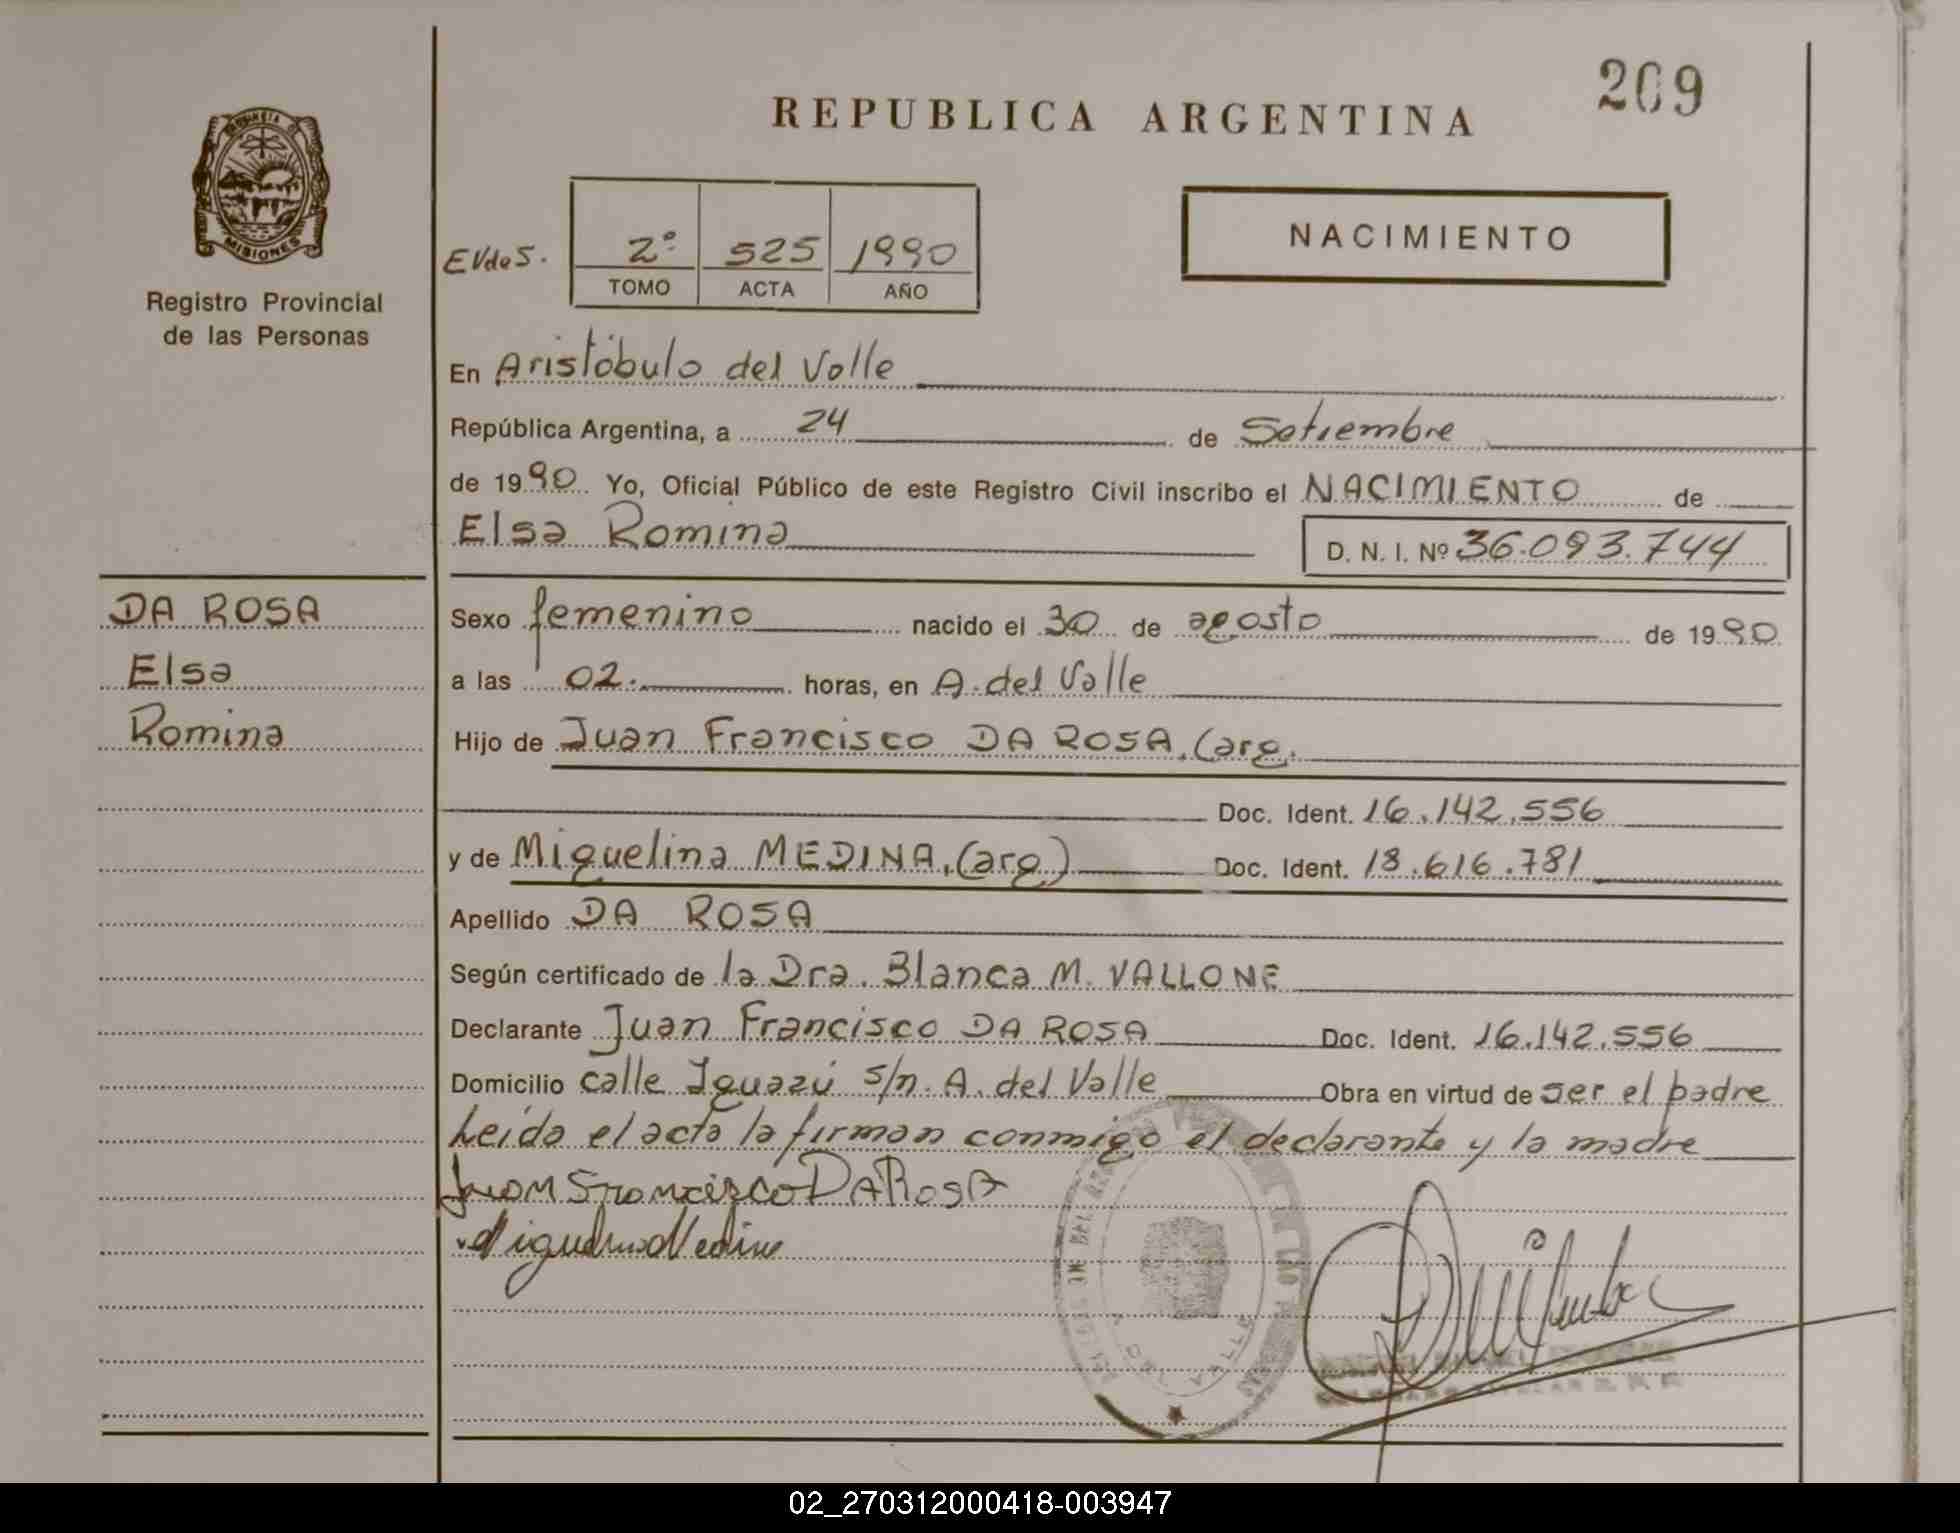 209
REPUBLICA ARGENTINA
MISIONES
Registro Provincial
de las Personas
EVdeS.
2º 525 1990
TOMO ACTA AÑO
NACIMIENTO
En Aristóbulo del Valle
República Argentina, a 24 de Setiembre
de 1990 Yo, Oficial Público de este Registro Civil inscribo el NACIMIENTO de
Elsa Romina D. N. I. Nº 36.093.744
DA ROSA
Elsa
Romina
Sexo femenino nacido el 30 de agosto de 1990
a las 02. horas, en A. del Valle
Hijo de Juan Francisco DA ROSA, (arg.
Doc. Ident. 16.142.556
y de Miguelina MEDINA, (arg) Doc. Ident. 18.616.781
Apellido DA ROSA
Según certificado de la Dra. Blanca M. VALLONE
Declarante Juan Francisco DA ROSA Doc. Ident. 16.142.556
Domicilio calle Iguazú s/n. A. del Valle Obra en virtud de ser el padre
Leída el acta la firman conmigo el declarante y la madre
Juan Francisco DA ROSA
Miguelina Medina
DEL VALLE
02_270312000418-003947